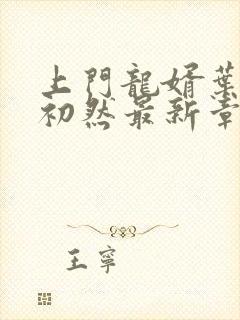 上門龍婿葉
初然最新章
王寧